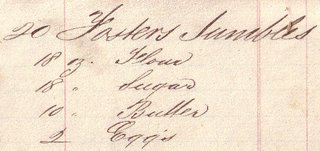 20 Fosters Jumbles
18 oz. Flour
18 " Sugar
10 " Butter
2 Eggs